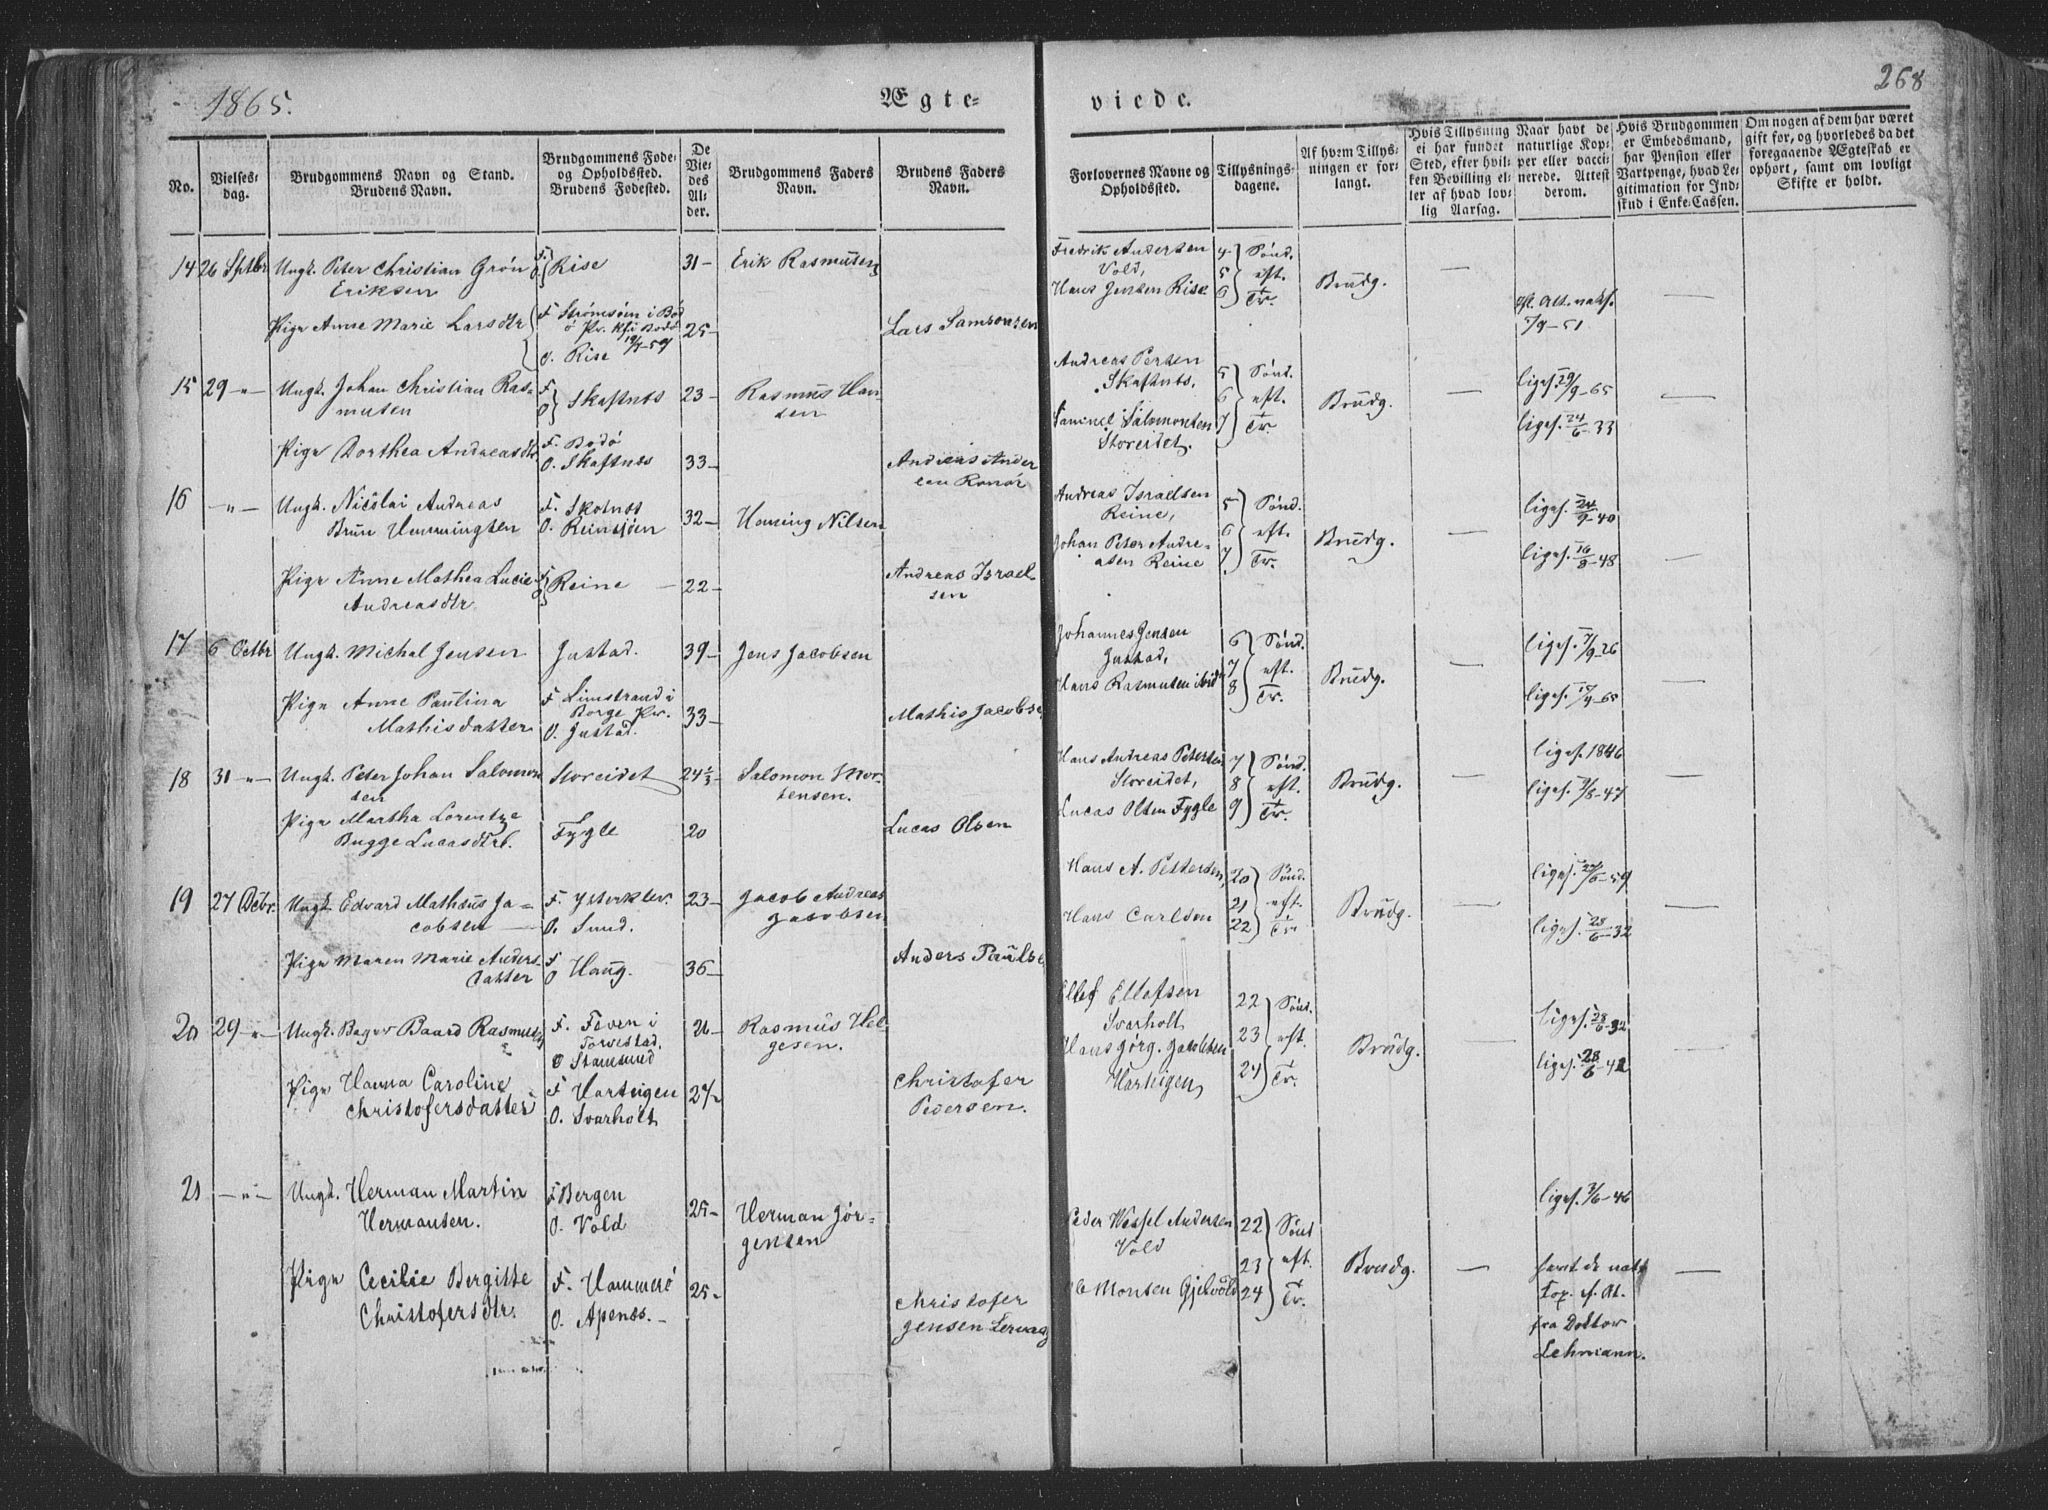 1865.
Ægte-
viede.
268
No.
Vielses-
dag.
Brudgommens Navn og Stand.
Brudens Navn.
Brudgommens Føde-
og Opholdssted.
Brudens Fødested.
De
Vie-
des
Al-
der.
Brudgommens Faders
Navn.
Brudens Faders
Navn.
Forlovernes Navne og
Opholdssted.
Tillysnings-
dagene.
Af hvem Tillys-
ningen er for-
langt.
Hvis Tillysning
ei har fundet
Sted, efter hvil-
ken Bevilling el-
ler af hvad lov-
lig Aarsag.
Naar havt de
naturlige Kop-
per eller vacci-
nerede. Attest
derom.
Hvis Brudgommen
er Embedsmand,
har Pension eller
Vartpenge, hvad Le-
gitimation for Ind-
skud i Enke-Cassen.
Om nogen af dem har været
gift før, og hvorledes da det
foregaaende Ægteskab er
ophørt, samt om lovligt
Skifte er holdt.
14 26 Sptbr Ungk. Peter Christian Grøn
Eriksen
F.
O. Rise
31 -
Erik Rasmusen
Fredrik Andersen
Vold,
Hans Jensen Rise
4
5
6
Sønd.
eft.
Tr.
Brudg.
—
Pige Anne Marie Larsdtr
F. Strømsøen i Bod
ø Pr.
O. Rise
25 -
Lars Samsonsen
—
15 29 -"- Ungk. Johan Christian Ras-
musen
F
O Skaftnes
23 -
Rasmus Han-
sen
Andreas Persen
Skaftnes,
Samuel Salomonsen
Storeidet.
5
6
7
Sønd.
eft.
Tr.
Brudg.
—
liges. 29/9-65
—
Pige Dorthea Andreasdtr.
F. Bodø
O. Skaftnes
33 -
Andreas Ander
sen
liges. 24/6-33
16 -"- Ungk. Nicolai Andreas
Brun Hemmingsen
F. Skotnes
O. Reinesjøen
32 -
Heming Nilsen
Andreas Israelsen
Reine,
Johan Peter Andre-
asen Reine
5
6
7
Sønd.
eft.
Tr.
Brudg.
—
liges. 24/9-40
—
Pige Anne Mathea Lucie
Andreasdtr.
F
O Reine
22 -
Andreas Israel
sen
liges. 16/8-48
17 6 Octbr Ungk. Michal Jensen
Justad.
39 -
Jens Jacobsen
Johannes Jensen
Justad,
Hans Rasmusen
6
7
8
Sønd.
eft.
Tr.
Brudg.
—
liges. 7/9-26
—
Pige Anne Paulina
Mathisdatter
F Limstrand i
Borge Pr.
O. Justad.
33 -
Mathis Jacobse
liges. 17/9-65
18 31 -"- Ungk. Peter Johan Salomon
sen
Storeidet
24 1/3 -
Salomon Mor-
tensen.
Hans Andreas Petersen
Storeidet,
Lucas Olsen Fygle
7
8
9
Sønd.
eft.
Tr.
Brudg.
—
ligef. 1846
—
Pige Martha Lorentze
Bugge Lucasdtr.
Fygle
20
Lucas Olsen
ligef. 3/8-47
19 27 Decbr. Ungk. Edvard Mathæus Ja-
cobsen
F. Ysterklev.
O. Sund.
23 -
Jacob Andreas
Jacobsen
Hans A. Pettersen
Hans Carlsen
20
21
22
Sønd.
eft.
Tr.
Brudg.
—
ligef. 27/6-59
—
Pige Maren Marie Anders
datter
F
O Haug.
36 -
Anders Paulse
ligef. 28/6-32
20 29 -"- Ungk. Bager Baard Rasmusen
F. Feven i
Torvestad.
O Stamsund
26 -
Rasmus Hel-
gesen.
Ellef Ellefsen
Svarholt
Hans Jørg. Jacobsen
Hartigen
22
23
24
Sønd.
eft.
Tr.
Brudg.
—
ligef. 28/6-32
—
Pige Hanna Caroline
Christofersdatter
F Hartigen
O. Svarholt
27 -
Christofer
Pedersen.
ligef. 28/6-42
21 -"- Ungk. Herman Martin
Hermansen.
F Bergen
O. Vold
25 -
Herman Jør-
gensen
Peder Wessel Andersen
Vold
Ole Monsen Gjelvold
22
23
24
Sønd
eft.
Tr.
Brudg.
—
ligef. 3/6-46
—
Pige Cecilie Bergitte
Christofersdtr.
F. Hammerø
O. Apenes.
25 -
Christofer
Jensen
havt de nat.
Kop. ef. At.
fra Doktor
Lehmann.